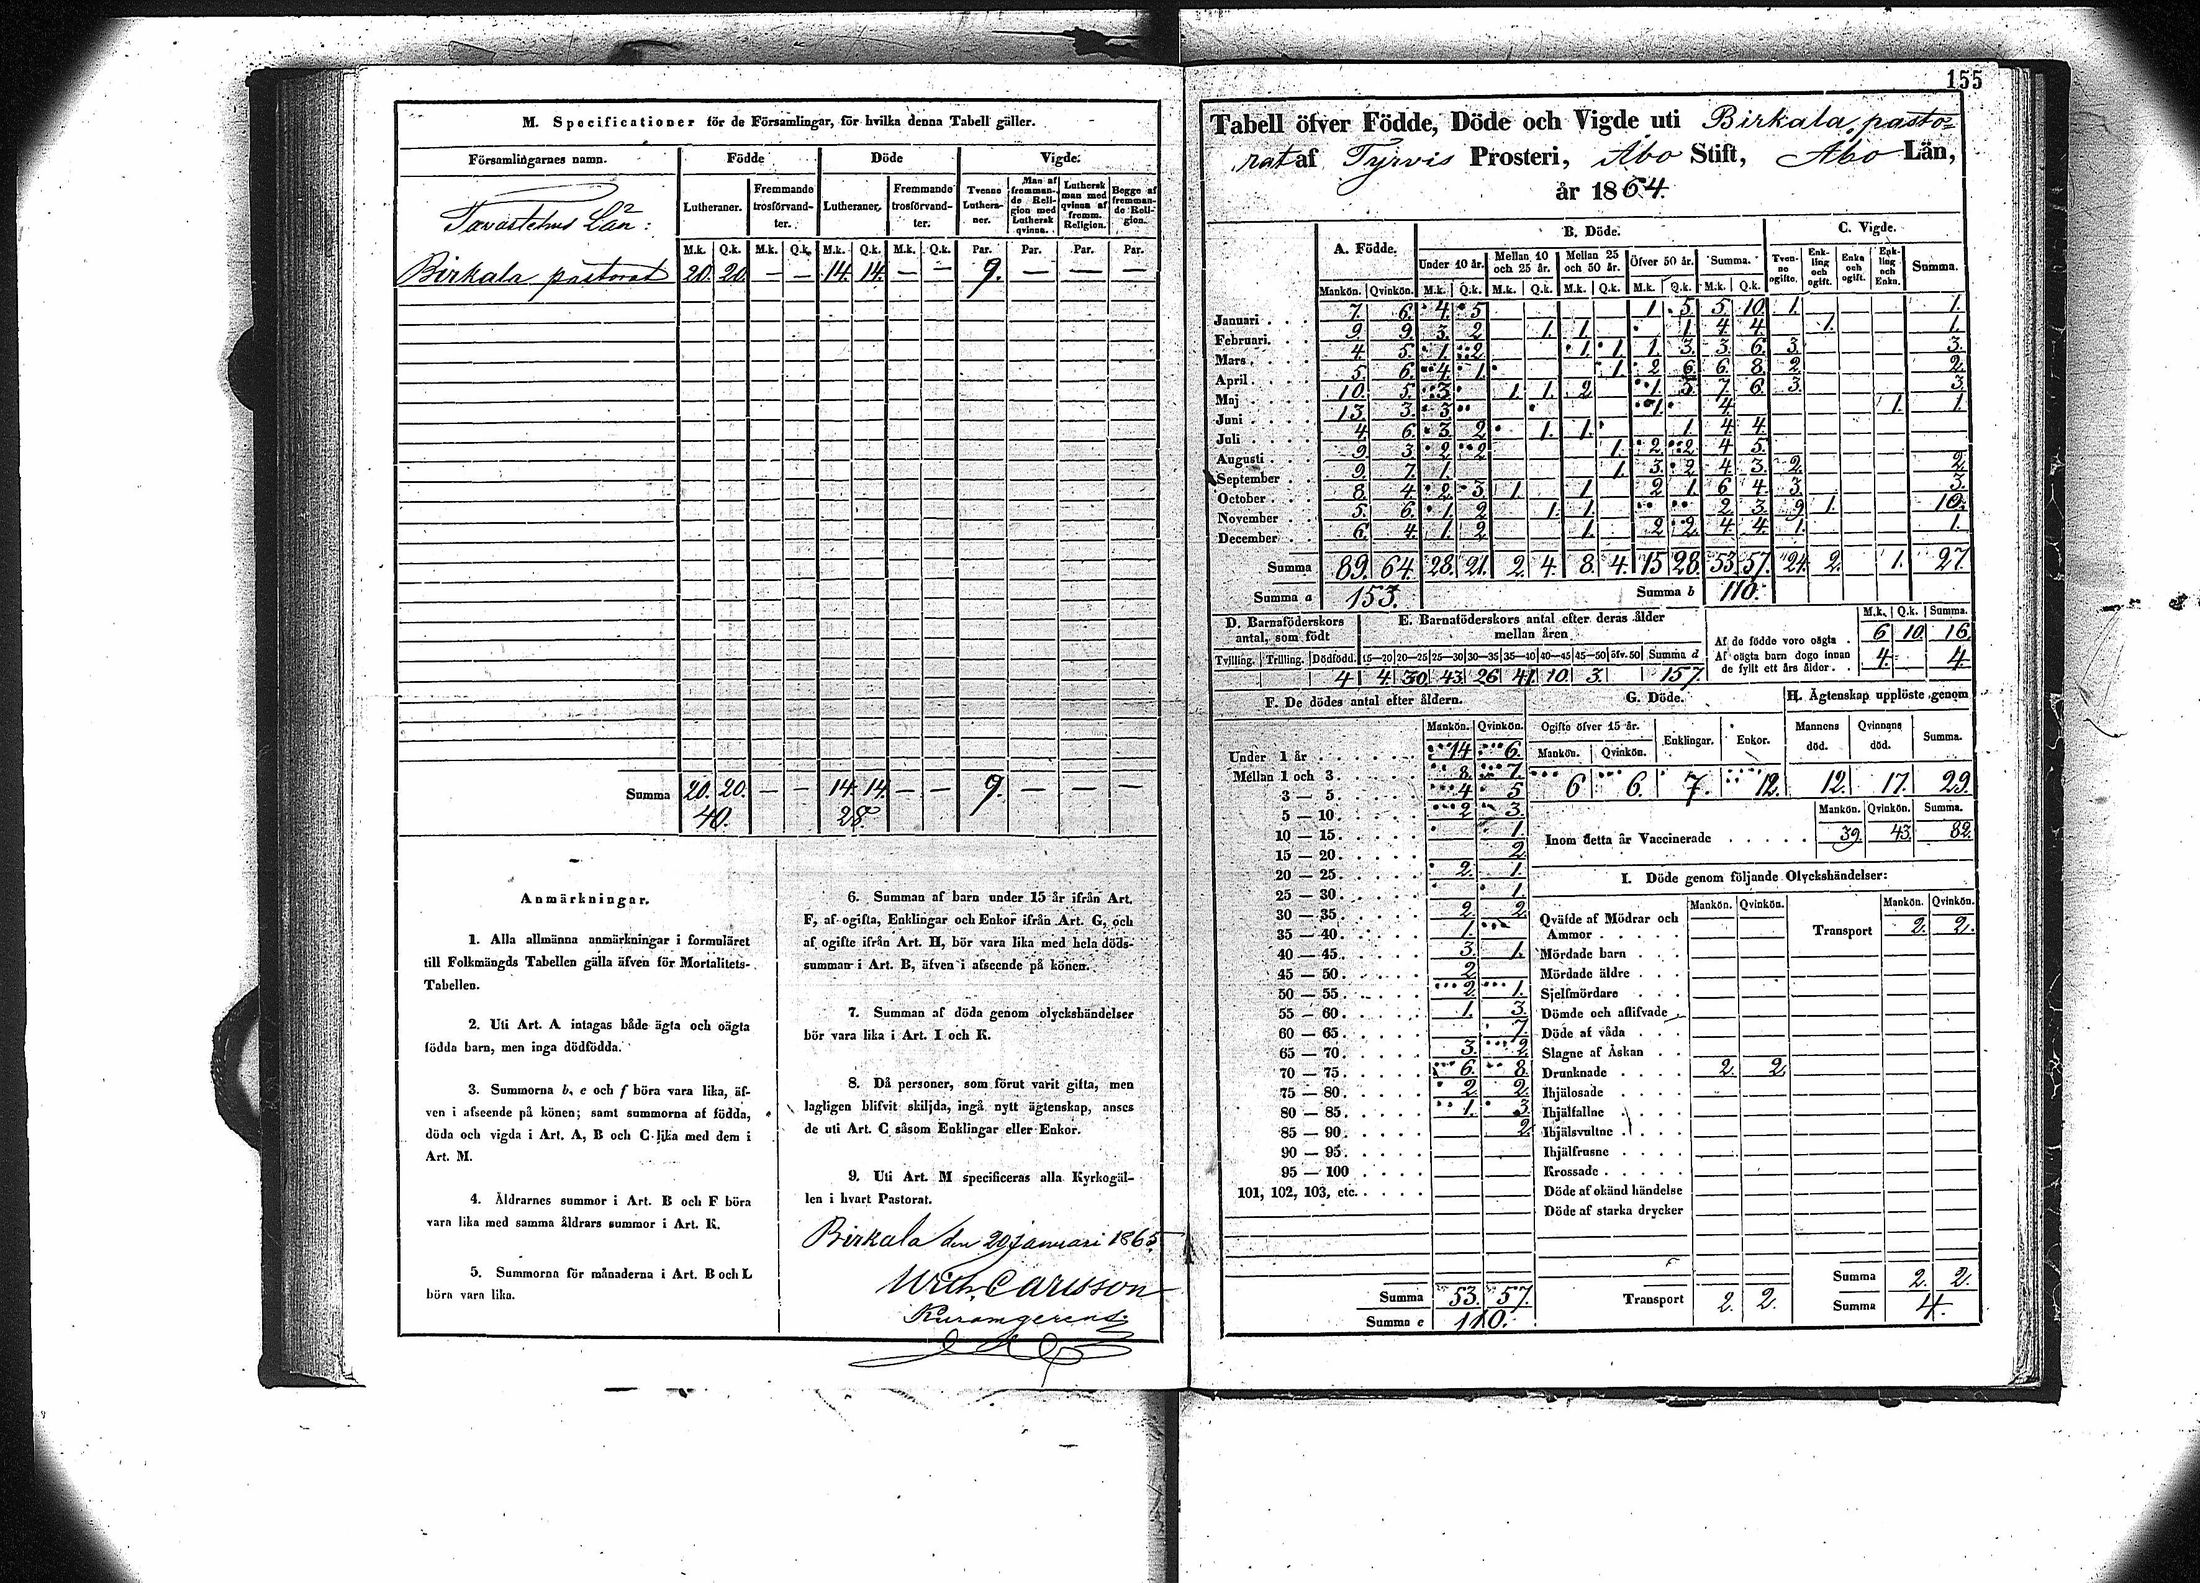 M. Specificationer för de Församlingar, för hvilka denna Tabell gäller.
Församlingarnes namn. Födde Döde Vigde.
Lutheraner. Fremmande trosförvandter. Lutheraner. Fremmande trosförvandter. Tvenne Lutheraner. Man af fremmande Religion med Luthersk qvinna. Luthersk man med qvinna af fremm. Religion. Begge af fremmande Religion.
M.k. Q.k. M.k. Q.k. M.k. Q.k. M.k. Q.k. Par. Par. Par. Par.
Tavastehus Län:
Birkala pastorat 20. 20. — — 14. 14. — — 9. — — —
Summa 20. 20. — — 14. 14. — — 9. — — —
40. 28.
Anmärkningar.
1. Alla allmänna anmärkningar i formuläret
till Folkmängds Tabellen gälla äfven för Mortalitets-
Tabellen.
2. Uti Art. A intagas både ägta och oägta
födda barn, men inga dödfödda.
3. Summorna b, e och f böra vara lika, äf-
ven i afseende på könen; samt summorna af födda,
döda och vigda i Art. A, B och C lika med dem i
Art. M.
4. Åldrarnes summor i Art. B och F böra
vara lika med samma åldrars summor i Art. K.
5. Summorna för månaderna i Art. B och L
böra vara lika.
6. Summan af barn under 15 år ifrån Art.
F, af ogifta, Enklingar och Enkor ifrån Art. G, och
af ogifte ifrån Art. H, bör vara lika med hela döds-
summan i Art. B, äfven i afseende på könen.
7. Summan af döda genom olyckshändelser
bör vara lika i Art. I och K.
8. Då personer, som förut varit gifta, men
lagligen blifvit skiljda, ingå nytt ägtenskap, anses
de uti Art. C såsom Enklingar eller Enkor.
9. Uti Art. M specificeras alla Kyrkogäl-
len i hvart Pastorat.
Birkala den 20 januari 1865.
Carlsson
155
Tabell öfver Födde, Döde och Vigde uti Birkala pasto-
rat af Tyrvis Prosteri, Åbo Stift, Åbo Län,
år 1864.
A. Födde. B. Döde. C. Vigde.
Under 10 år. Mellan 10 och 25 år. Mellan 25 och 50 år. Öfver 50 år. Summa. Tvenne ogifte. Enkling och ogift. Enka och ogift. Enkling och Enka. Summa.
Mankön. Qvinkön. M.k. Q.k. M.k. Q.k. M.k. Q.k. M.k. Q.k. M.k. Q.k.
Januari . . . 7. 6. 4. 5 1. 5. 5. 10. 1. 1.
Februari. . . 9. 9. 3. 2. 1. 1. 1. 4. 4. 1. 1.
Mars . . . 4. 5. 1. 2. 1. 1. 1. 3. 3. 6. 3. 3.
April . . . 5. 6. 4. 1. 1. 2. 6. 6. 8. 2. 2.
Maj . . . 10. 5. 3. 1. 1. 2. 1. 5. 7. 6. 3. 3.
Juni . . . 13. 3. 3. 1. 4. 1. 1.
Juli . . . 4. 6. 3. 2. 1. 1. 1. 4. 4.
Augusti . . . 9. 3. 2. 2. 1. 2. 2. 4. 5.
September . . 9. 7. 1. 1. 3. 2. 4. 3. 2. 2.
October . . . 8. 4. 2. 3. 1. 1. 2. 1. 6. 4. 3. 3.
November . . 5. 6. 1. 2. 1. 1. 2. 3. 9. 1. 10.
December . . 6. 4. 1. 2. 1. 2. 2. 4. 4. 1. 1.
Summa 89. 64. 28. 21. 2. 4. 8. 4. 15. 28. 53. 57. 24. 2. 1. 27.
Summa a 153. Summa b 110.
D. Barnaföderskors antal, som födt
Tvilling. Trilling. Dödfödd.
4.
E. Barnaföderskors antal efter deras ålder mellan åren
15—20 20—25 25—30 30—35 35—40 40—45 45—50 öfv. 50 Summa d
4. 30. 43. 26. 41. 10. 3. 157.
M.k. Q.k. Summa.
Af de födde voro oägta . 6. 10. 16.
Af oägta barn dogo innan
de fyllt ett års ålder . . 4. 4.
F. De dödes antal efter åldern.
Mankön. Qvinkön.
Under 1 år . . . 14. 6.
Mellan 1 och 3 . . . 8. 7.
3 — 5 . . . 4. 5
5 — 10 . . . 2. 3.
10 — 15 . . . 1.
15 — 20 . . . 2.
20 — 25 . . . 2. 1.
25 — 30 . . . 1.
30 — 35 . . . 2. 2.
35 — 40 . . . 1.
40 — 45 . . . 3. 1.
45 — 50 . . . 2.
50 — 55 . . . 2. 1.
55 — 60 . . . 1. 3.
60 — 65 . . . 7.
65 — 70 . . . 3. 2.
70 — 75 . . . 6. 8.
75 — 80 . . . 2. 2.
80 — 85 . . . 1. 3.
85 — 90 . . . 2.
90 — 95 . . .
95 — 100 . . .
101, 102, 103, etc. . . .
Summa 53. 57.
Summa e 110.
G. Döde.
Ogifte öfver 15 år. Enklingar. Enkor.
Mankön. Qvinkön.
6. 6. 7. 12.
H. Ägtenskap upplöste genom
Mannens död. Qvinnans död. Summa.
12. 17. 29.
Mankön. Qvinkön. Summa.
Inom detta år Vaccinerade . . . 39. 43. 82.
I. Döde genom följande Olyckshändelser:
Mankön. Qvinkön. Mankön. Qvinkön.
Qväfde af Mödrar och
Ammor . . . Transport 2. 2.
Mördade barn . . .
Mördade äldre . . .
Sjelfmördare . . .
Dömde och aflifvade
Döde af våda . . .
Slagne af Åskan . .
Drunknade . . . 2. 2.
Ihjälosade . . .
Ihjälfallne . . .
Ihjälsvultne . . .
Ihjälfrusne . . .
Krossade . . .
Döde af okänd händelse
Döde af starka drycker
Transport 2. 2.
Summa 2. 2.
Summa 4.